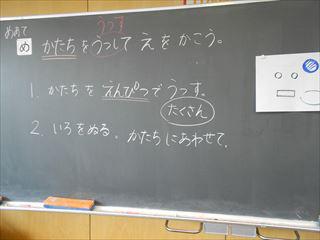 めあて
うつす
め かたちをうつして えをかこう。
1. かたちを えんぴつで うつす。
たくさん
2. いろをぬる。かたちにあわせて。